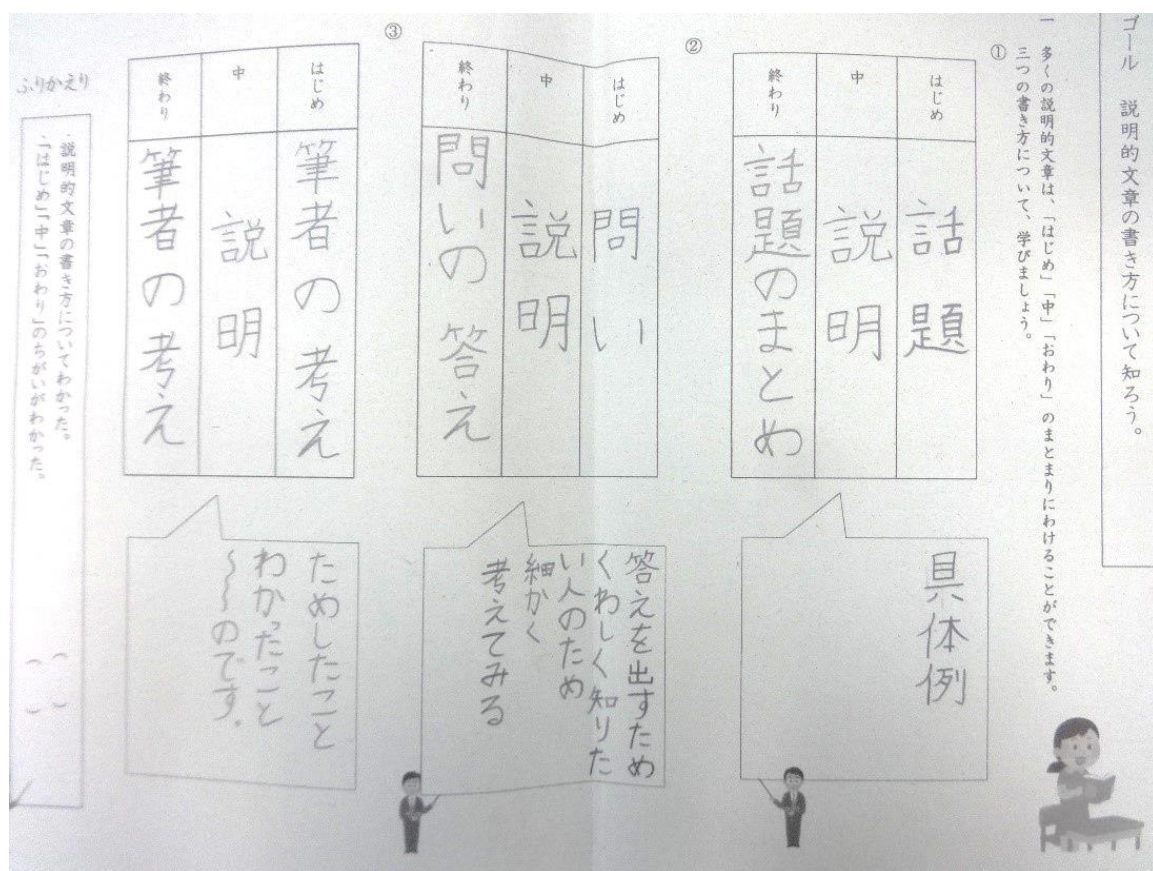 ゴール 説明的文章の書き方について知ろう。
一 多くの説明的文章は、「はじめ」「中」「おわり」のまとまりにわけることができます。
三つの書き方について、学びましょう。
①
はじめ
話題
中
説明
終わり
話題のまとめ
具体例
②
はじめ
問い
中
説明
終わり
問いの答え
答えを出すため
くわしく知りた
い人のため
細かく
考えてみる
③
はじめ
筆者の考え
中
説明
終わり
筆者の考え
ためしたこと
わかったこと
〜〜〜のです。
ふりかえり
・説明的文章の書き方についてわかった。
・「はじめ」「中」「おわり」のちがいがわかった。
( )
( )